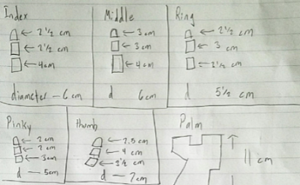 Index
2 1/2 cm
2 1/2 cm
4cm
diameter - 6cm
Middle
2cm
3cm
4cm
d 6cm
Ring
2 1/2 cm
3 cm
2 1/2 cm
d 5 1/2 cm
Pinky
2cm
2cm
3cm
d - 5cm
thumb
4cm
d - 7cm
Palm
11 cm